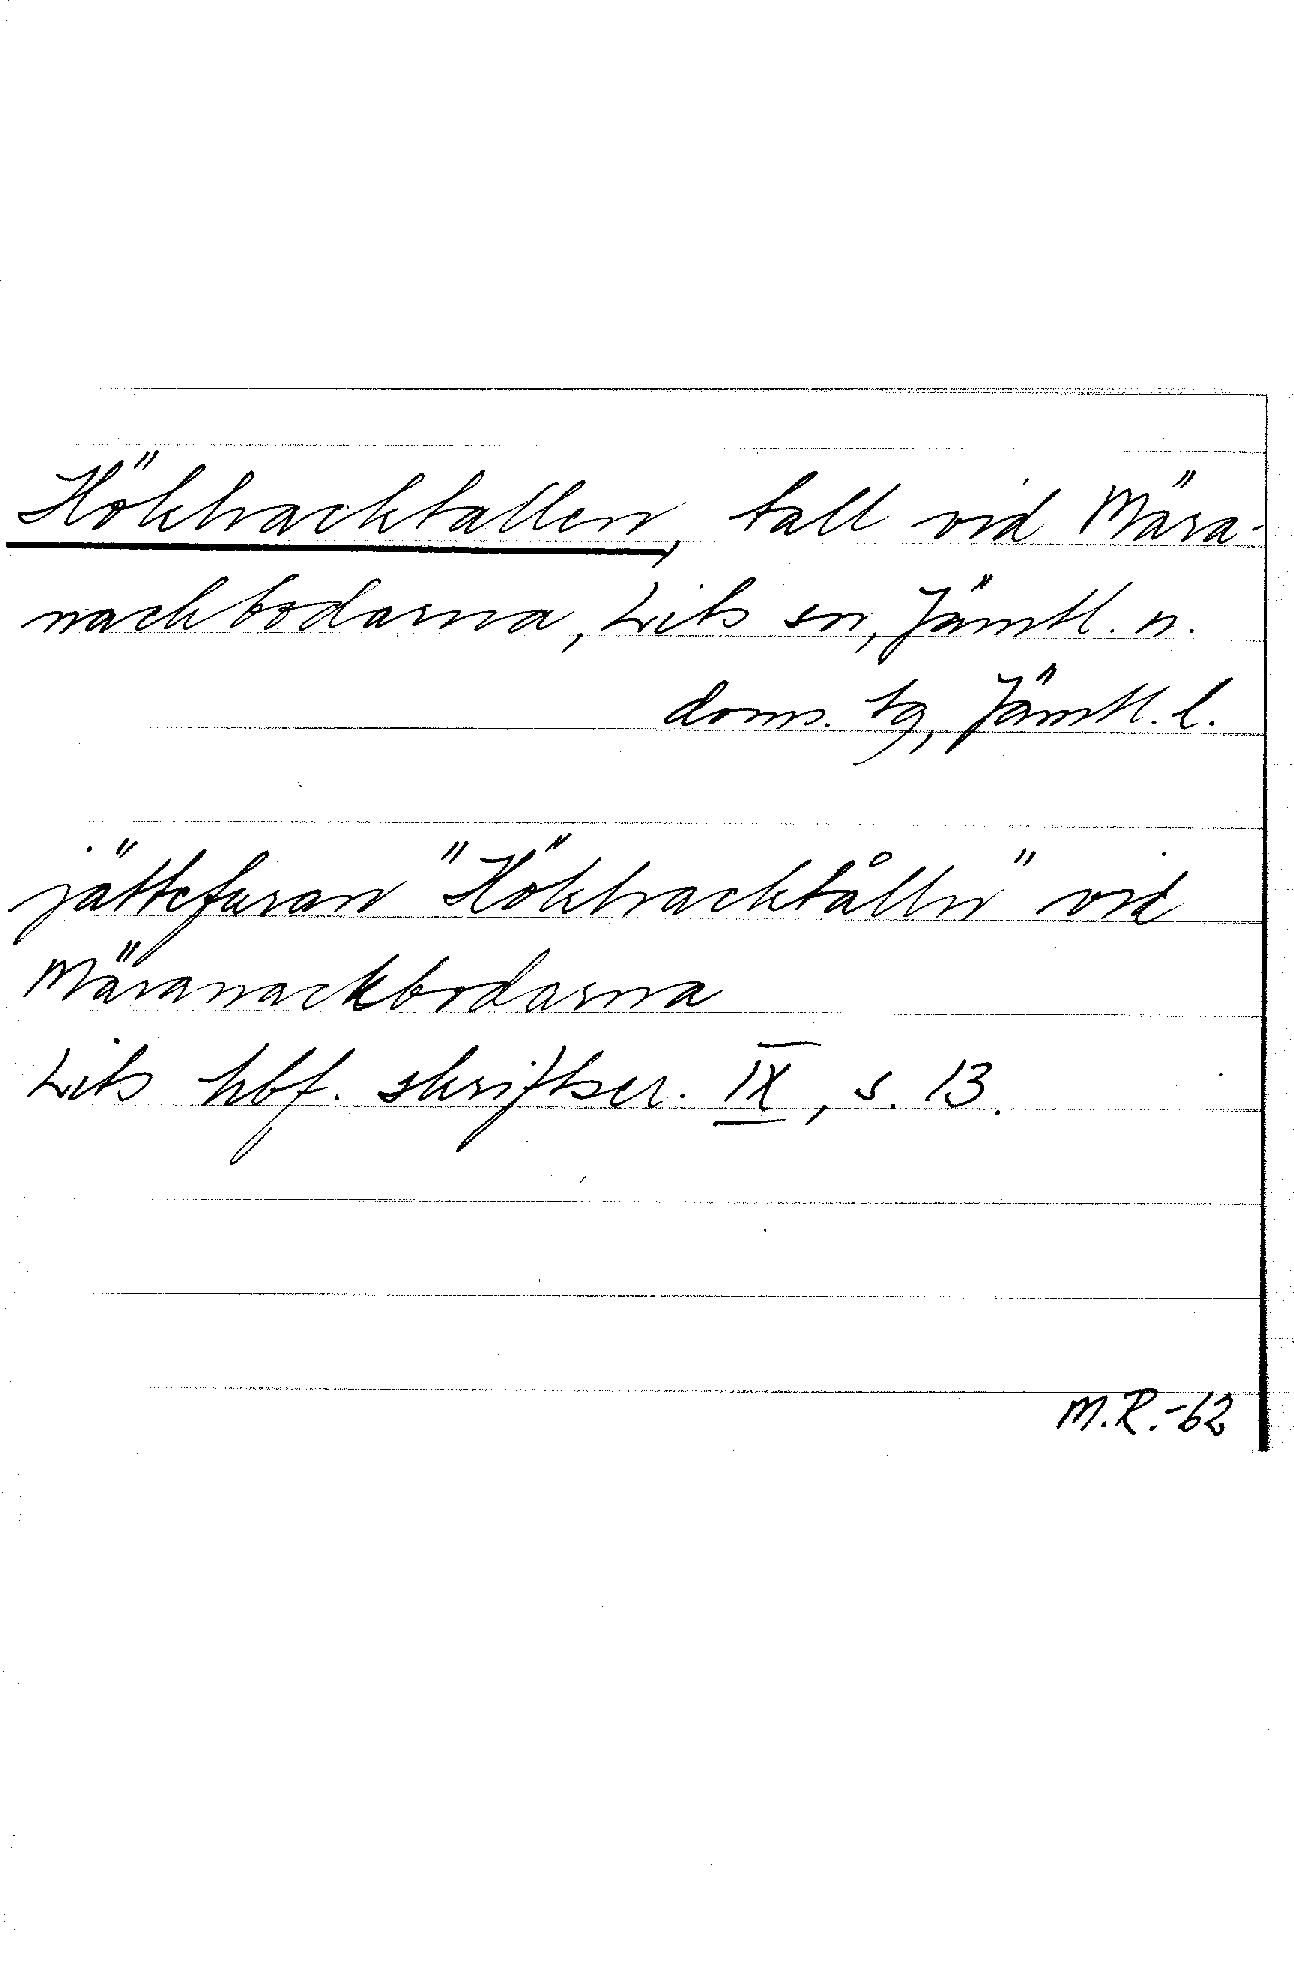 Hökhacktallen, tall vid Mära-
nackbodarna, Lits sn, Jämtl. n.
doms. tg, Jämtl. l.
jättefuran "Hökhacktålln" vid
Märanackbodarna
Lits hbf. skriftser. IX, s. 13.
M.R.-62